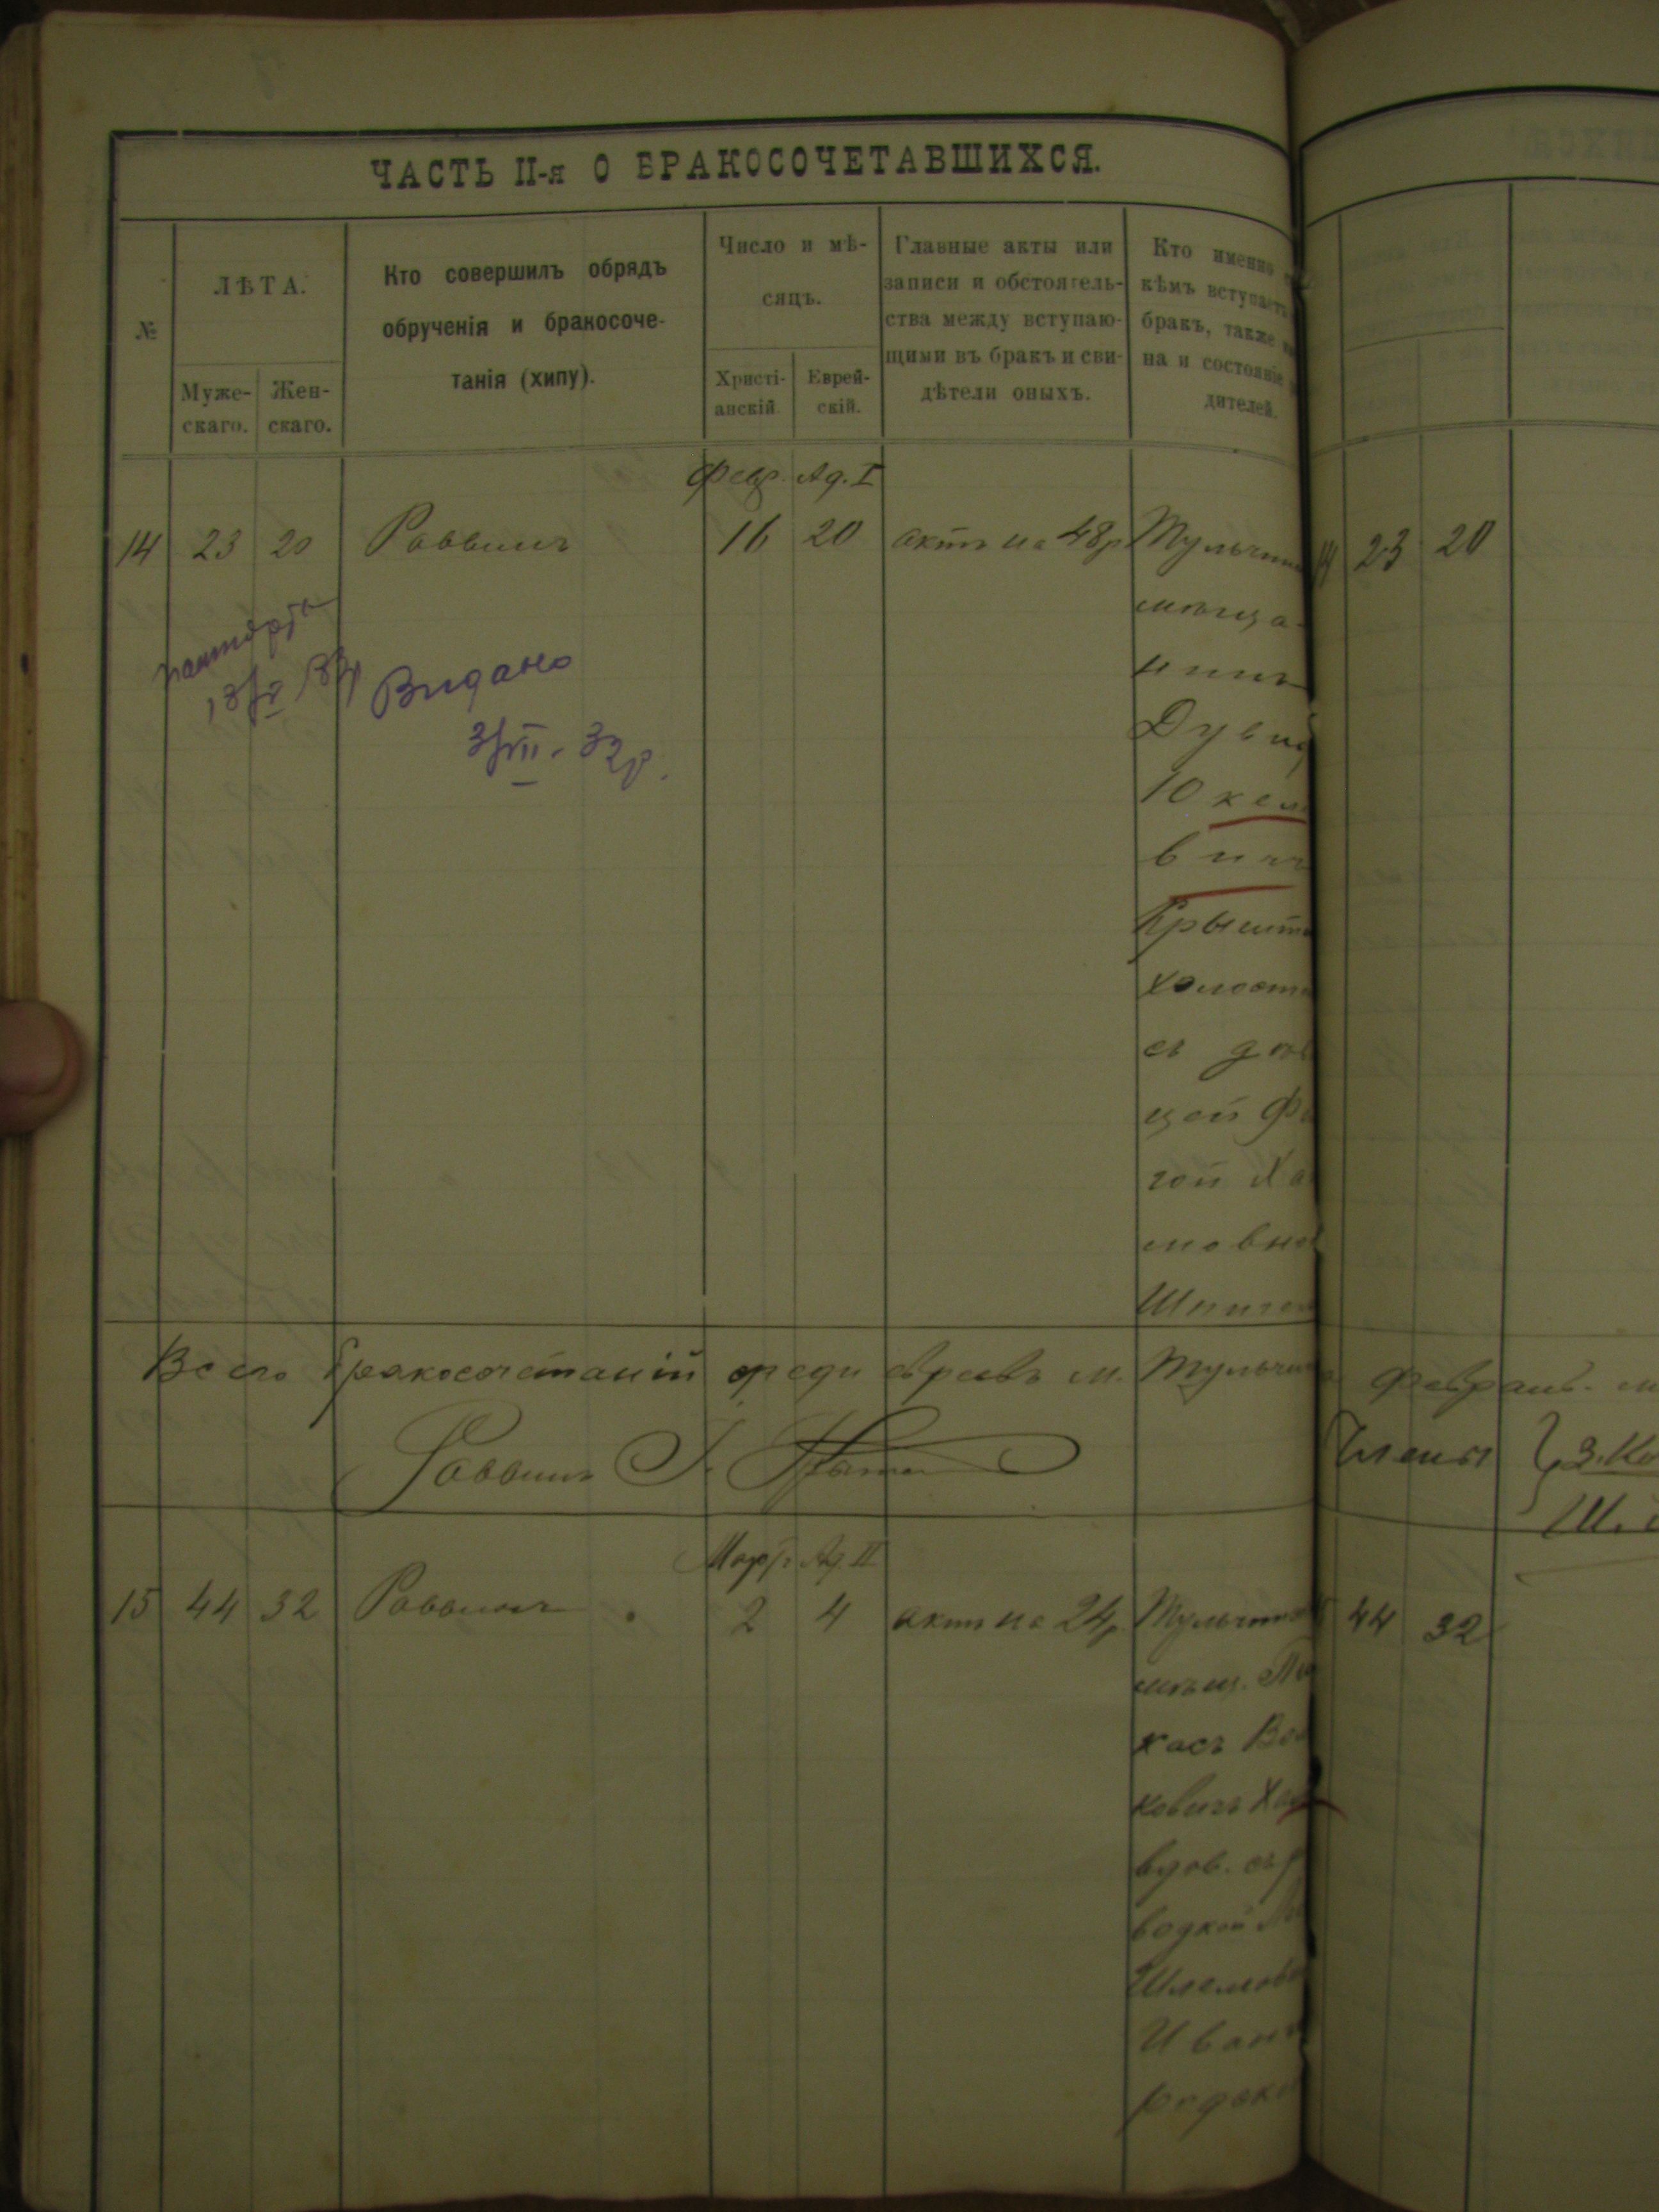 ЧАСТЬ II-я О БРАКОСОЧЕТАВШИХСЯ.
№
ЛѢТА.
Муже-
скаго.
Жен-
скаго.
Кто совершилъ обрядъ
обрученія и бракосоче-
танія (хипу).
Число и мѣ-
сяцъ.
Христі-
анскій.
Еврей-
скій.
Главные акты или
записи и обстоятель-
ства между вступаю-
щими въ бракъ и сви-
дѣтели оныхъ.
Кто именно
кѣмъ вступаетъ
бракъ, также
на и состояніе
дителей.
Февр. Ад. I
14 23 20 Раввинъ 16 20 актъ на 48р Тульчин
мѣща-
нинъ
Дувид
Юкел
вичъ
Крышта
холост
съ дѣв
цей Фе
гой Ха
мовной
Шпигел
Видано
3/VII. 32р.
Всего бракосочетаній среди евреевъ м. Тульчина Феврал. м
Раввинъ
Члены З. Ко
Ш.
Март. Ад. II
15 44 32 Раввинъ 2 4 актъ на 24р Тульчин
мѣщ. Пи
касъ Вол
ковичъ Ха
вдов. съ р
водкой
Шлемов
Иван
родск
14 23 20
44 32